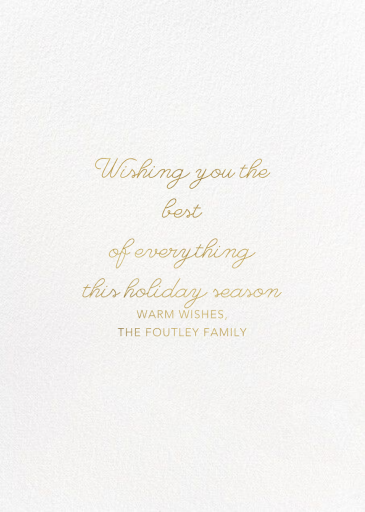 Wishing you the
best
of everything
this holiday season
WARM WISHES,
THE FOUTLEY FAMILY